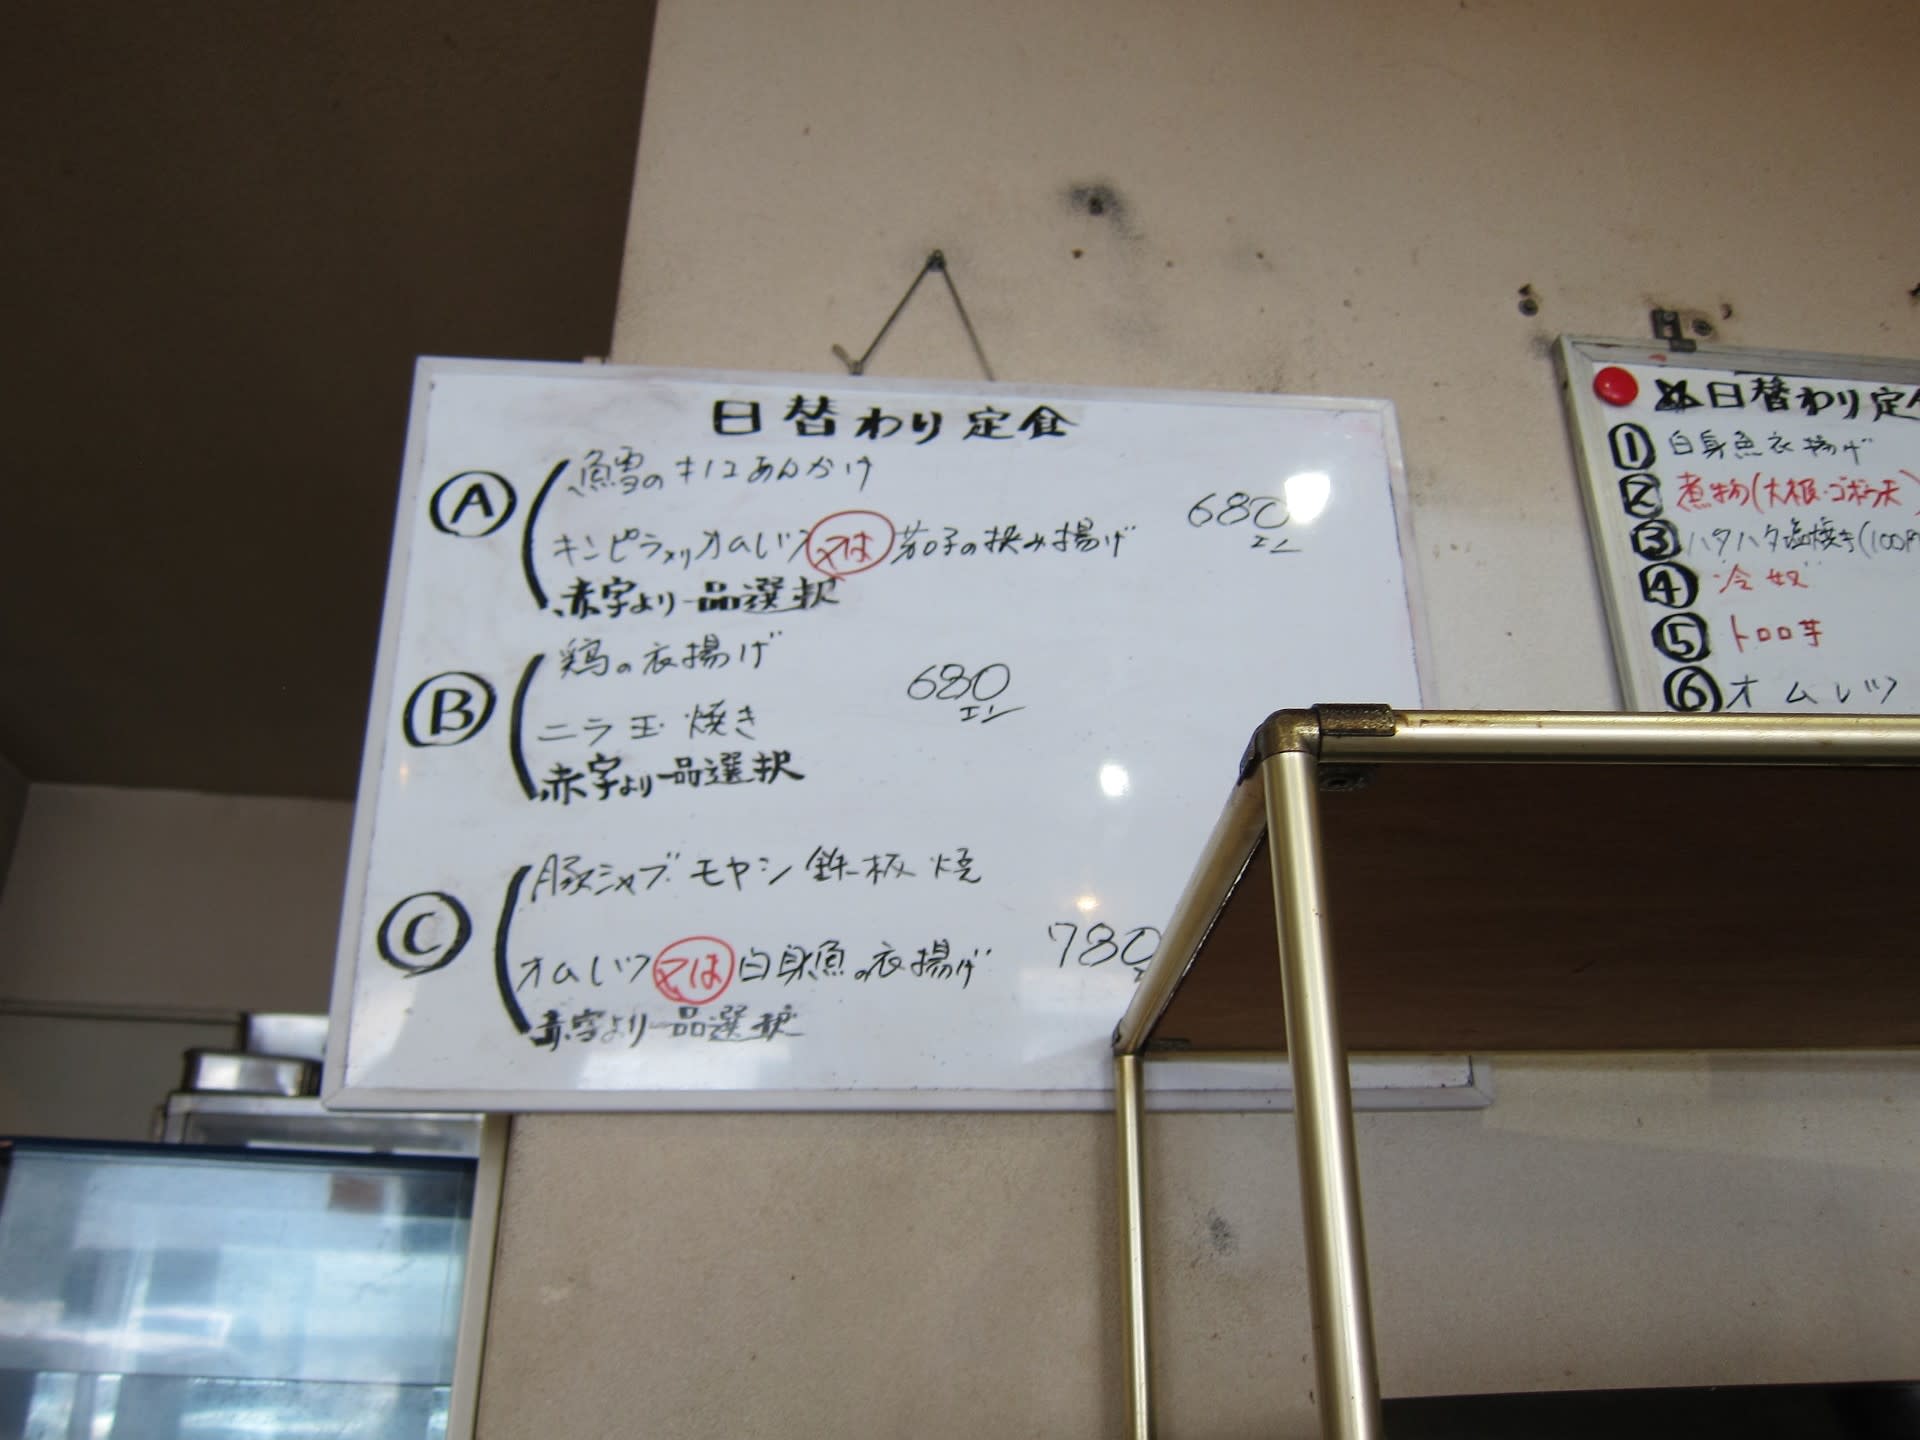 日替わり定食
Ⓐ
鱈のキノコあんかけ
キンピラ入りオムレツ 又は 茄子の挟み揚げ
680エン
赤字より一品選択
Ⓑ
鶏の衣揚げ
680エン
ニラ玉焼き
赤字より一品選択
Ⓒ
豚シャブモヤシ鉄板焼
オムレツ 又は 白身魚の衣揚げ
780
赤字より一品選択
日替わり定
① 白身魚衣揚げ
② 煮物(大根・ゴボウ天)
③ ハタハタ塩焼き(100円
④ 冷奴
⑤ トロロ芋
⑥ オムレツ